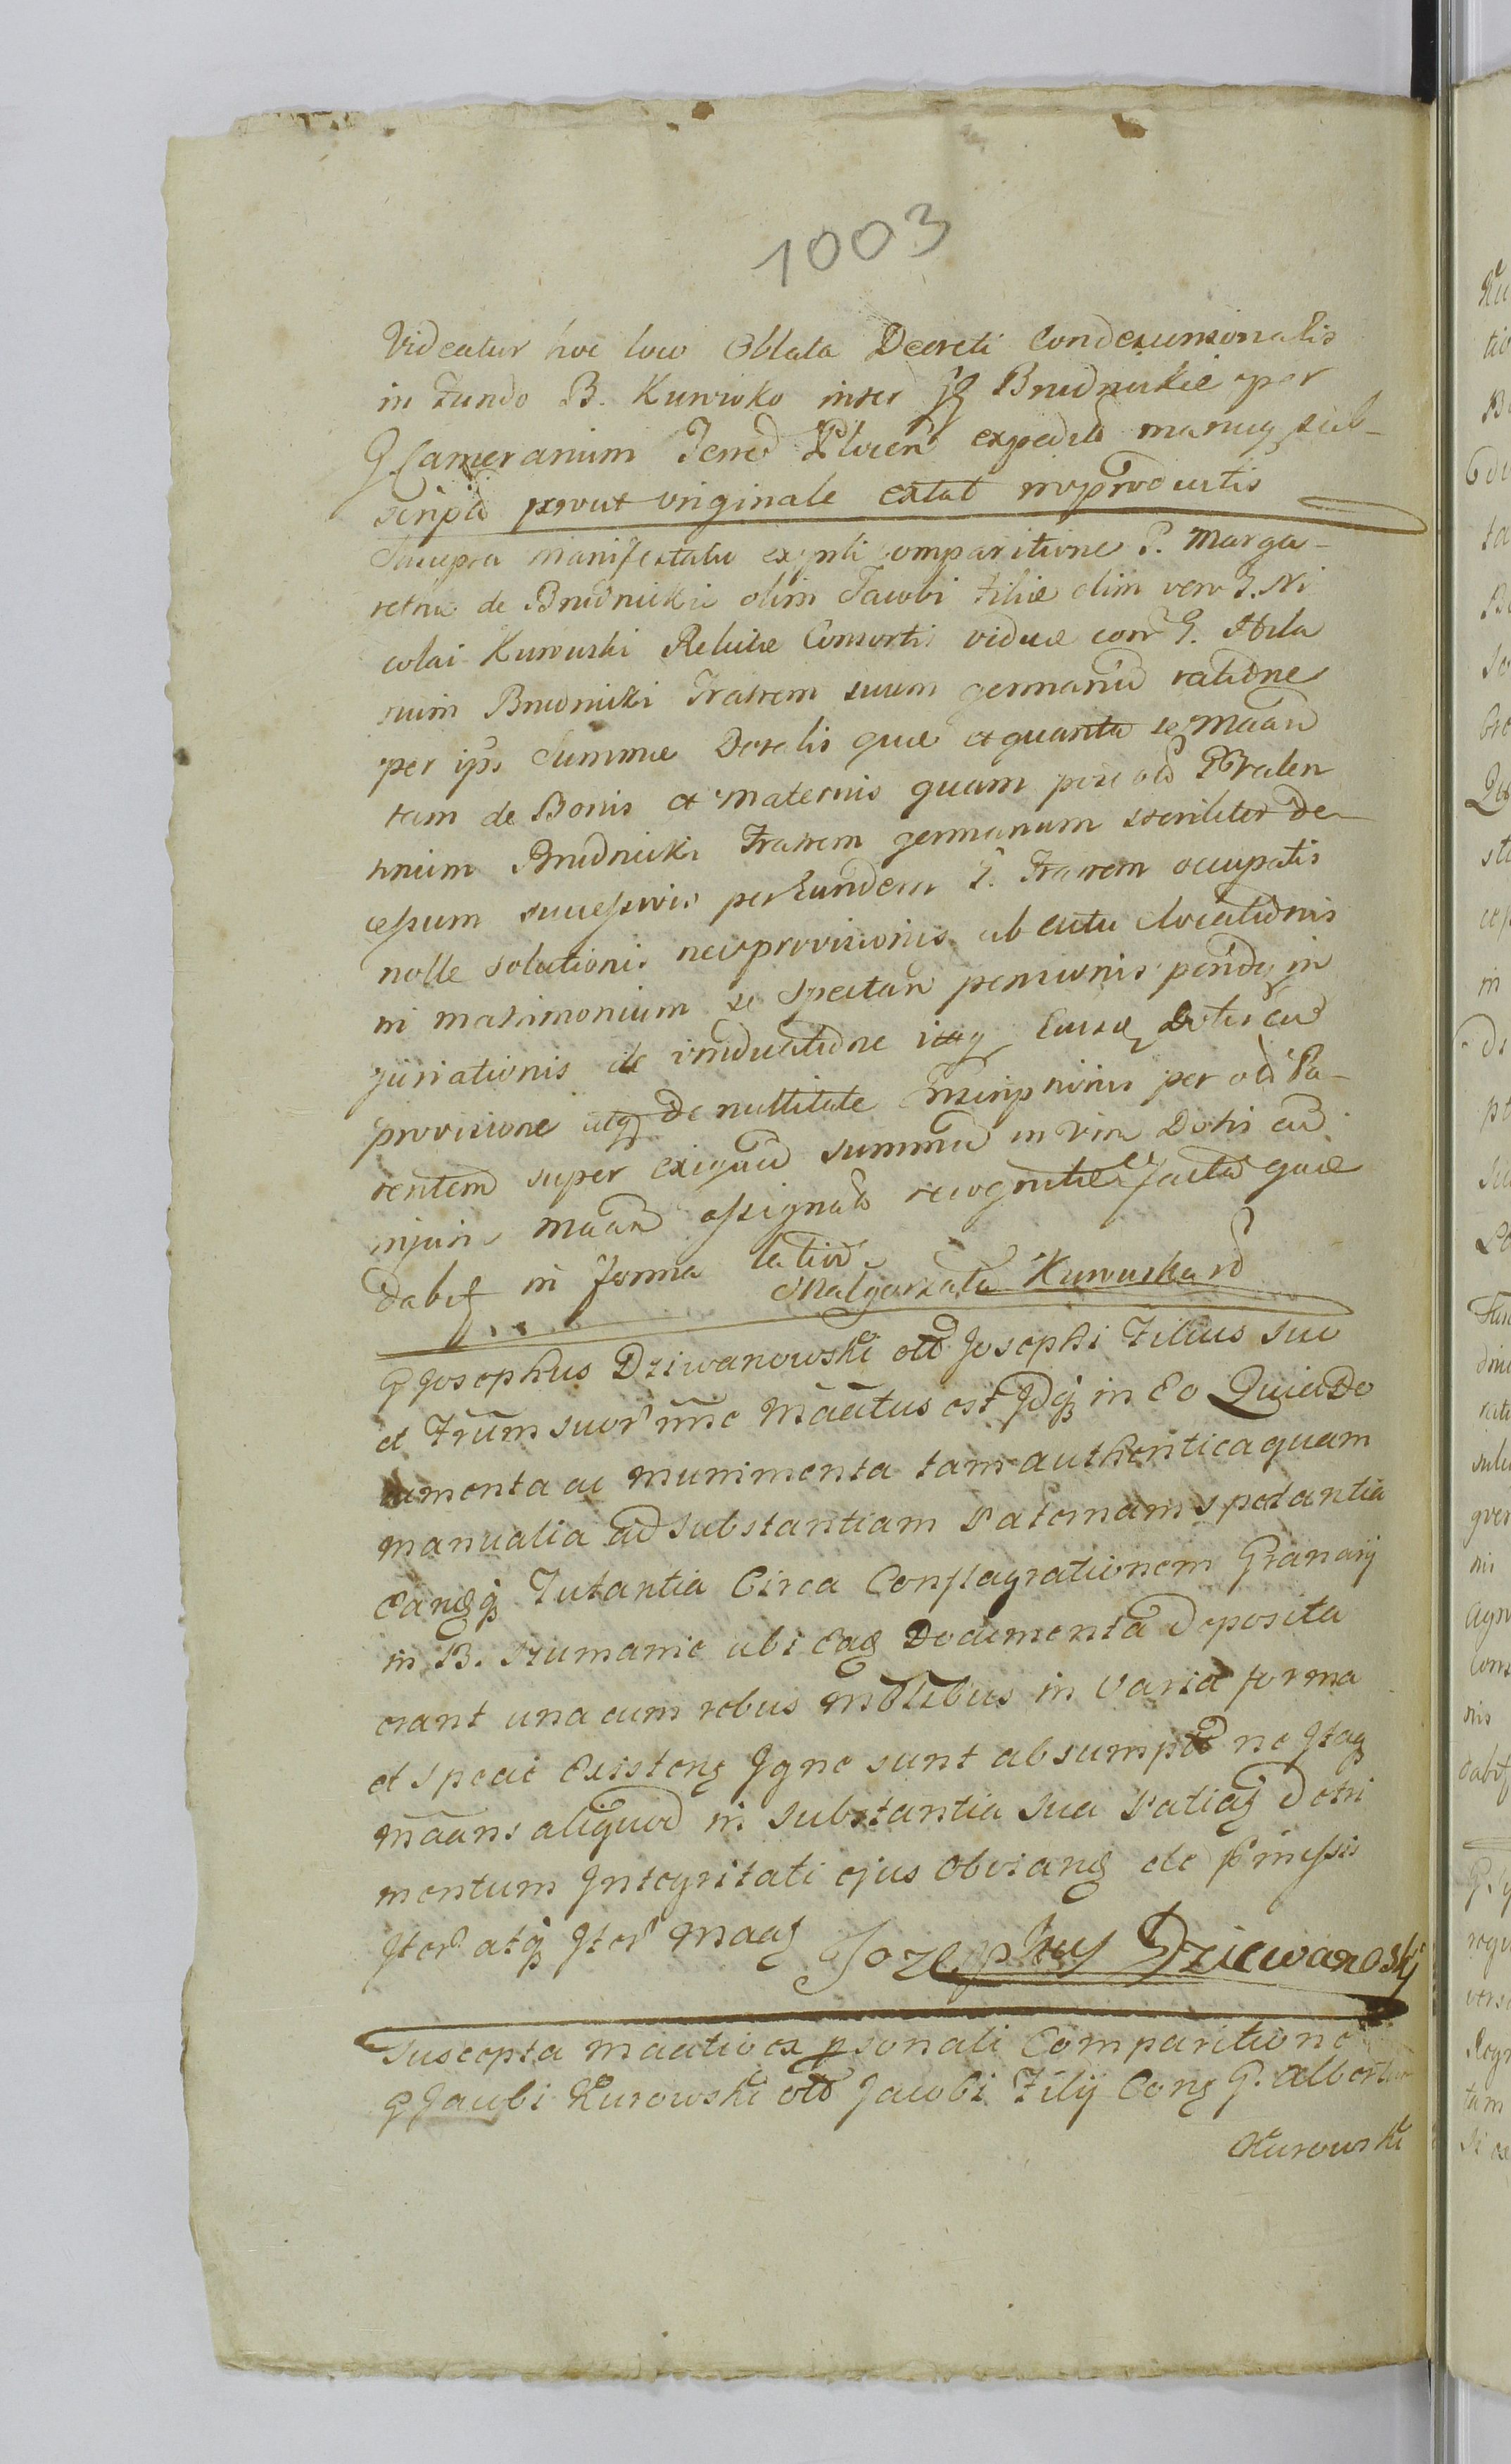 1003
Videatur hoc loco Oblata Decreti Condescensionalis
in Fundo B. Kurowko inter GG Brudnickie per
G Camerarium Terrae Plocen expedit manuq sub-
script prout originale extat reproductis
Suscepta Manifestatio ex pnli comparitione G. Marga-
rethae de Brudnickie olim Jacobi Filiae olim vero G. Ni
colai Kurowski Relictae Consortis viduae con G. Hila
rium Brudnicki Fratrem suum germanu ratione
per ips Summae Dotalis quae et quanta se maan
tam de Bonis et Maternis quam post old Valen
tinum Brudnicki Fratrem germanum steriliter de-
cessum successivis per Eundem G. Fratrem occupatis
nolle solutionis nec provisionis ab actu elocationis
in matrimonium se spectan pensionis pende in
juriationis de conductione itaq Dotis cu
provisione atq de nullitate Inscriptionis per old Pa-
rentem super exiguu summa in vim Dotis cu
injuri maan assignat recognitae facta quae
dabit in forma latior
Malgorzata Kurowska
G Josephus Dziwanowski old Josephi Filius suo
et Frum suor nne Maatus est Idq in Eo Quia Do
cumenta ac munimenta tam authentica quam
manualia ad substantiam Paternam spectantia
Eandq Tutantia Circa Conflagrationem Granarij
in B. Szumanie ubi Eaq Documenta deposita
erant una cum rebus mobilibus in varia forma
et specie Existenq Igne sunt absumpta ne Itaq
maans aliquod in substantia sua Patiaq detri
mentum Integritati ejus obvianq de pmissis
Iter atq Iter maaq Jozephus Dziewanoski
Suscepta maatio ex psonali Comparitione
G Jacobi Kurowski old Jacobi Filij Conq G. Albertum
Kurowski